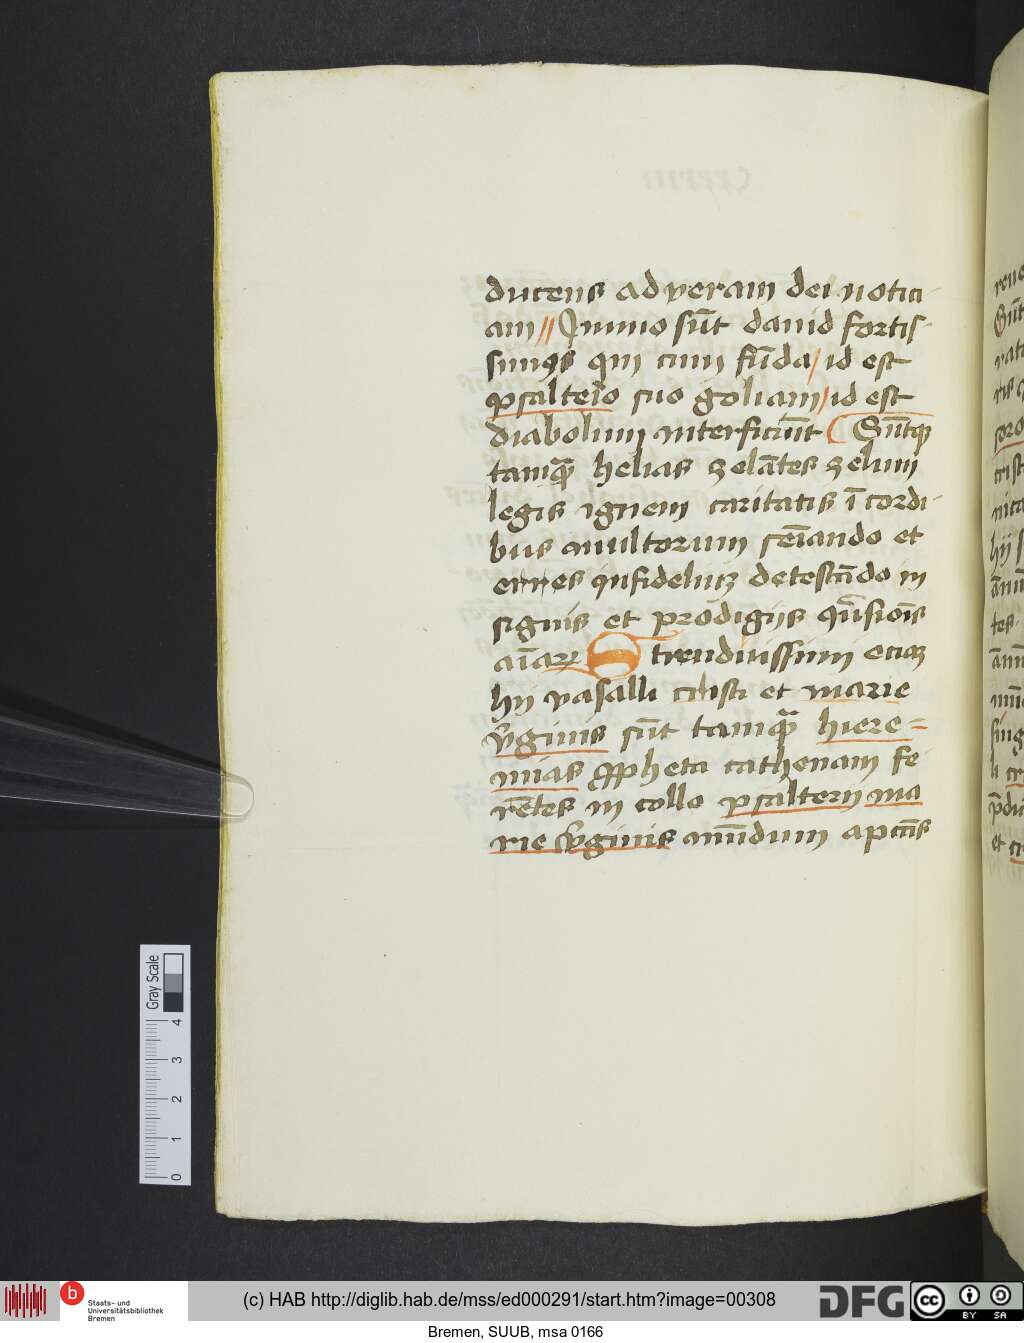 ducens ad veram dei noticiam
am // Immo sūt dauid fortis-
simus qui cum fūda / id est
psalteīo suo goliam / id est
diabolum interficiūt Sūtqꝫ
tamqᷓ helias zelātes zelum
legis ignem caritatis ī cordi-
bus multorum et
infideliuꝫ detestādo in
signis et prodigijs
aīaꝝ Strenuissimi eciaꝫ
hij vasalli cristi et marie
v̄ginis sūt tamqᷓ hiere=
mias ꝓpheta cathenam fe-
rētes in collo psalterij ma
rie v̄ginis mūdum
Gray Scale
0 1 2 3 4
b Staats- und
Universitätsbibliothek
Bremen
(c) HAB http://diglib.hab.de/mss/ed000291/start.htm?image=00308
DFG
cc BY SA
Bremen, SUUB, msa 0166